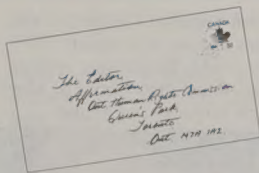 CANADA
The Editor,
Affirmation,
Ont. Human Rights Commission
Queen's Park,
Toronto
Ont. M7A 1A2.